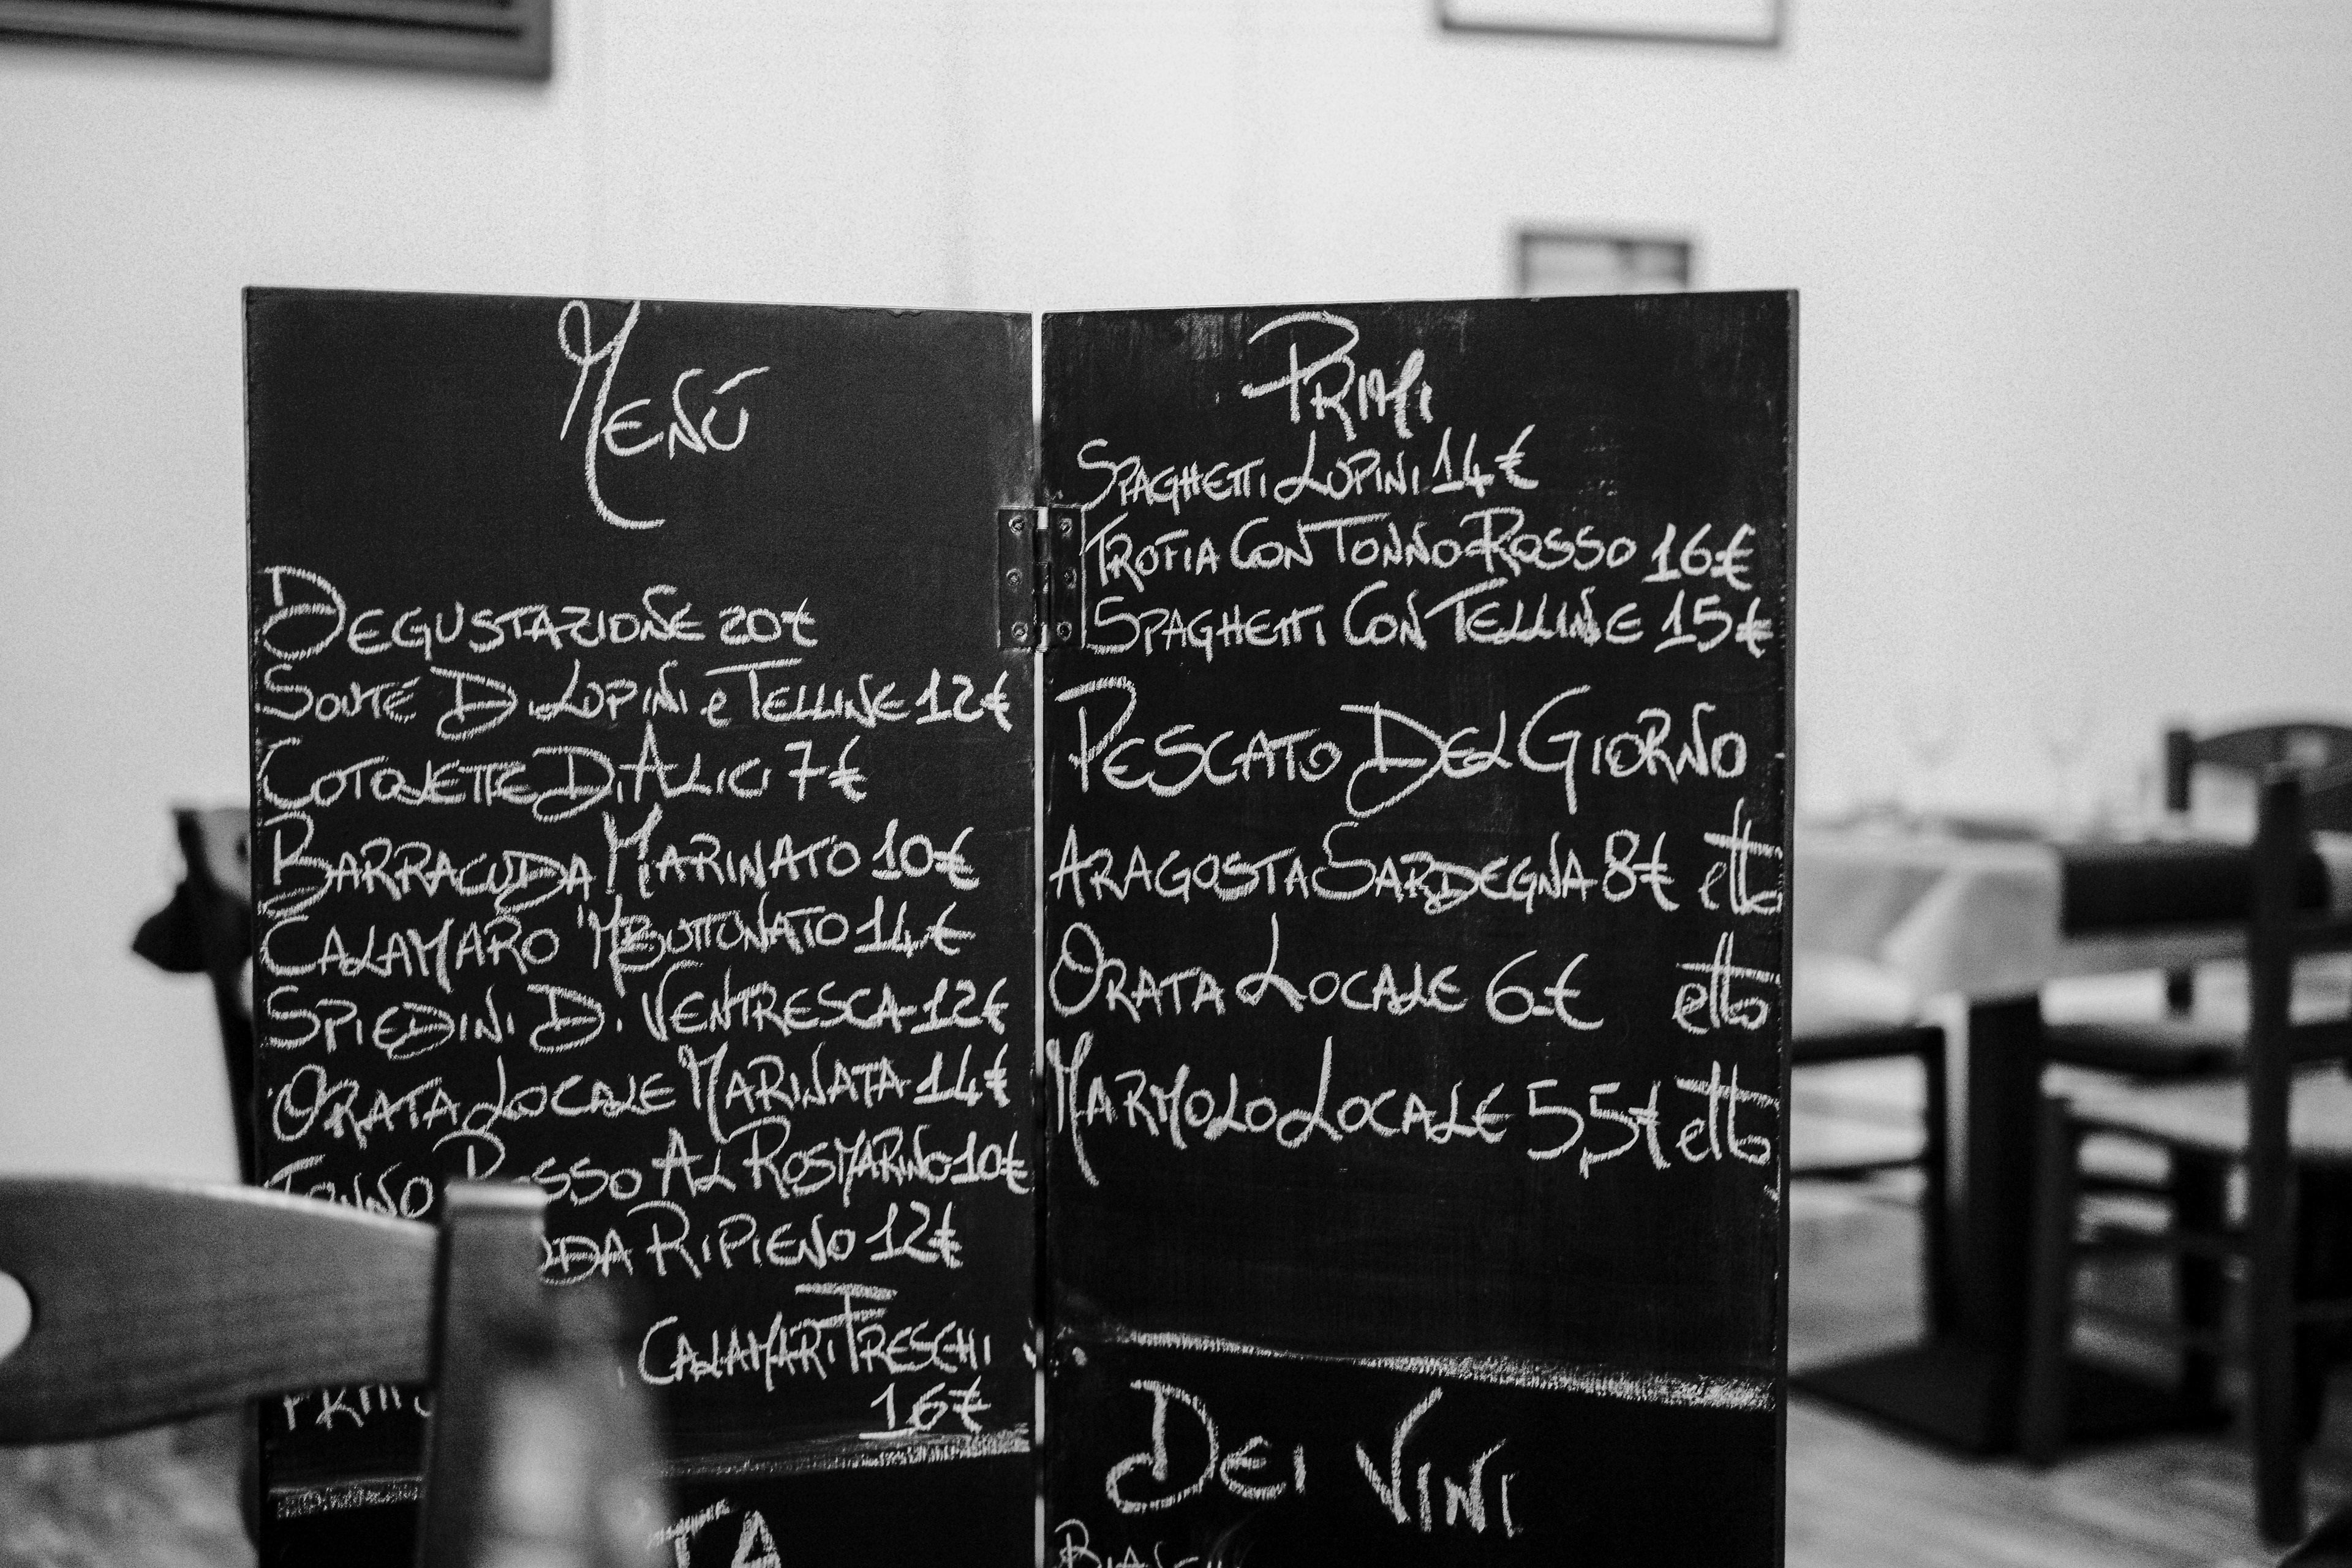 Menú
Degustazione 20€
Souté Di Lupini e Telline 12€
Cotolette Di Alici 7€
Barracuda Marinato 10€
Calamaro 'Mbuttunato 14€
Spiedini Di Ventresca 12€
Orata Locale Marinata 14€
Tonno Rosso Al Rosmarino 10€
Ripieno 12€
Calamari Freschi
16€
Primi
Spaghetti Lupini 14€
Trofia Con Tonno Rosso 16€
Spaghetti Con Telline 15€
Pescato Del Giorno
Aragosta Sardegna 8€ etto
Orata Locale 6€ etto
Marmolo Locale 5,5€ etto
Dei Vini